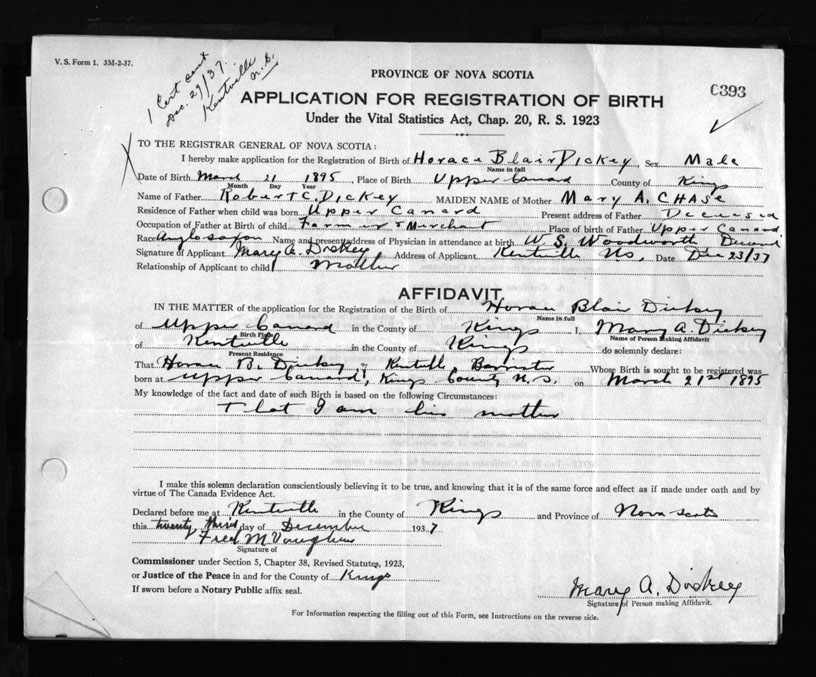 V. S. Form 1. 3M-2-37.
1 Cert sent
Dec. 29/37.
Kentville N.S.
PROVINCE OF NOVA SCOTIA
C393
APPLICATION FOR REGISTRATION OF BIRTH
Under the Vital Statistics Act, Chap. 20, R. S. 1923
TO THE REGISTRAR GENERAL OF NOVA SCOTIA:
I hereby make application for the Registration of Birth of Horace Blair Dickey, Sex Male
Name in full
Date of Birth March 21 1895, Place of Birth Upper Canard County of Kings
Month Day Year
Name of Father Robert C. Dickey MAIDEN NAME of Mother Mary A. CHASE
Residence of Father when child was born Upper Canard Present address of Father Deceased
Occupation of Father at Birth of child Farmer & Merchant Place of birth of Father Upper Canard
Race Anglo saxon Name and present address of Physician in attendance at birth W. S. Woodworth Deceased
Signature of Applicant Mary A. Dickey Address of Applicant Kentville NS, Date Dec 23/37
Relationship of Applicant to child Mother
AFFIDAVIT
IN THE MATTER of the application for the Registration of the Birth of Horace Blair Dickey
Name in full
of Upper Canard in the County of Kings I, Mary A. Dickey
Birth Place Name of Person Making Affidavit
of Kentville in the County of Kings do solemnly declare:
Present Residence
That Horace B. Dickey of Kentville Barrister Whose Birth is sought to be registered was
born at Upper Canard, Kings County N.S. on March 21st 1895
My knowledge of the fact and date of such Birth is based on the following Circumstances:
That I am his mother
I make this solemn declaration conscientiously believing it to be true, and knowing that it is of the same force and effect as if made under oath and by
virtue of The Canada Evidence Act.
Declared before me at Kentville in the County of Kings and Province of Nova Scotia
this twenty third day of December 1937
Fred M Vaughan
Signature of
Commissioner under Section 5, Chapter 38, Revised Statutes, 1923,
or Justice of the Peace in and for the County of Kings
If sworn before a Notary Public affix seal.
Mary A. Dickey
Signature of Person making Affidavit.
For Information respecting the filling out of this Form, see Instructions on the reverse side.